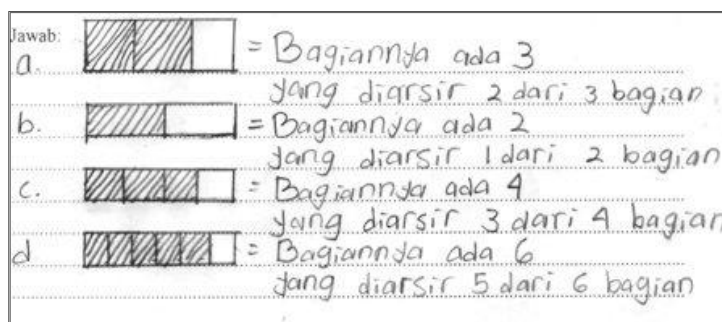 Jawab:
a. = Bagiannya ada 3
yang diarsir 2 dari 3 bagian
b. = Bagiannya ada 2
yang diarsir 1 dari 2 bagian
c. = Bagiannya ada 4
yang diarsir 3 dari 4 bagian
d = Bagiannya ada 6
yang diarsir 5 dari 6 bagian